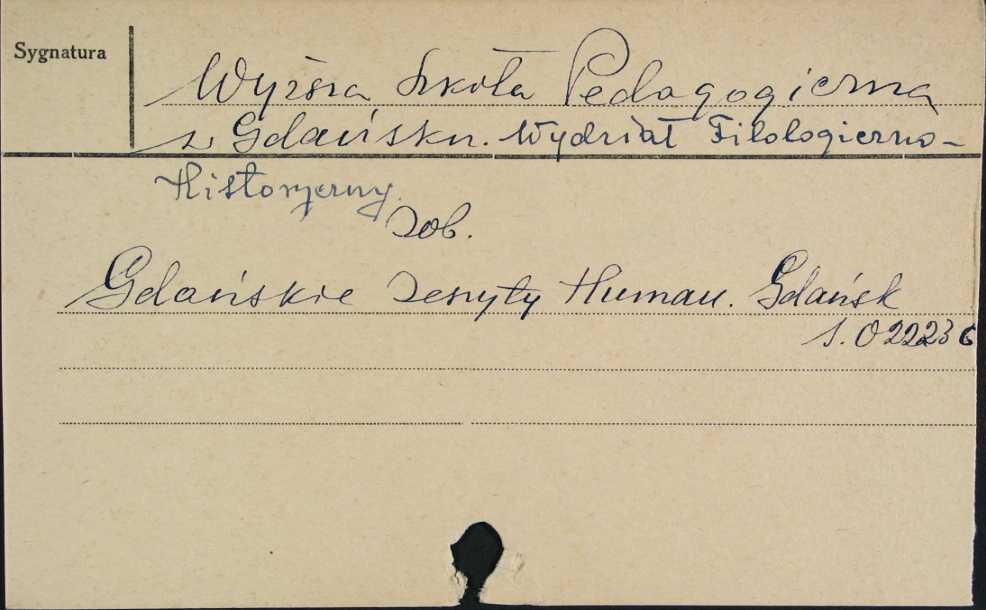 Sygnatura
Wyższa Szkoła Pedagogiczna
w Gdańsku. Wydział Filologiczno-
Historyczny.
Zob.
Gdańskie Zeszyty Human. Gdańsk
s. 022236